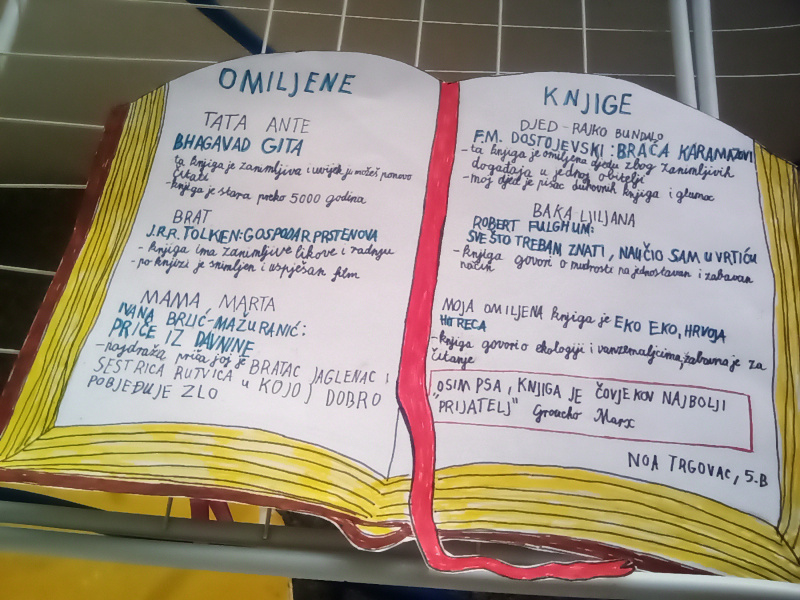 OMILJENE
TATA ANTE
BHAGAVAD GITA
ta knjiga je zanimljiva i uvijek ju možeš ponovo
čitati
-knjiga je stara preko 5000 godina
BRAT
J.R.R. TOLKIEN: GOSPODAR PRSTENOVA
- knjiga ima zanimljive likove i radnju
- po knjizi je snimljen i uspješan film
MAMA MARTA
IVANA BRLIĆ-MAŽURANIĆ:
PRIČE IZ DAVNINE
- najdraža priča joj je BRATAC JAGLENAC I
SESTRICA RUTVICA u KOJOJ DOBRO
POBJEĐUJE ZLO
KNJIGE
DJED - RAJKO BUNDALO
F.M. DOSTOJEVSKI: BRAĆA KARAMAZOVI
-ta knjiga je omiljena djedu zbog zanimljivih
događaja u jednoj obitelji
- moj djed je pisac duhovnih knjiga i glumac
BAKA LJILJANA
ROBERT FULGHUM:
SVE ŠTO TREBAM ZNATI, NAUČIO SAM U VRTIĆU
- knjiga govori o mudrosti na jednostavan i zabavan
način
MOJA OMILJENA knjiga je EKO EKO, HRVOJA
-knjiga govori o ekologiji i vanzemaljcima, zabavna je za
čitanje
OSIM PSA, KNJIGA JE ČOVJEKOV NAJBOLJI
"PRIJATELJ" Groucho Marx
NOA TRGOVAC, 5.B